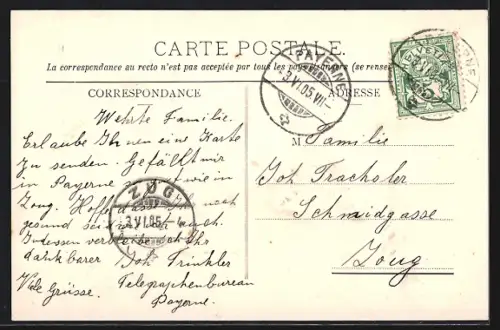 CARTE POSTALE.
La correspondance au recto n'est pas acceptée par tous les pays étrangers (se rense
CORRESPONDANCE
ADRESSE
PAYERNE
3.VI.05.VII-
HELVETIA
Wehrte Familie.
Erlaube Ihnen eine Karte
zu senden. Gefällt mir
in Payerne wie in
Zoug. Hoffe dass noch
gesund auch.
Indessen Ihr
dankbarer Joh. Trinkler
Telegraphenbureau
Viele Grüsse. Payerne.
ZUG
3.VI.05.
M Familie
Joh. Trachsler
Schmidgasse
Zoug